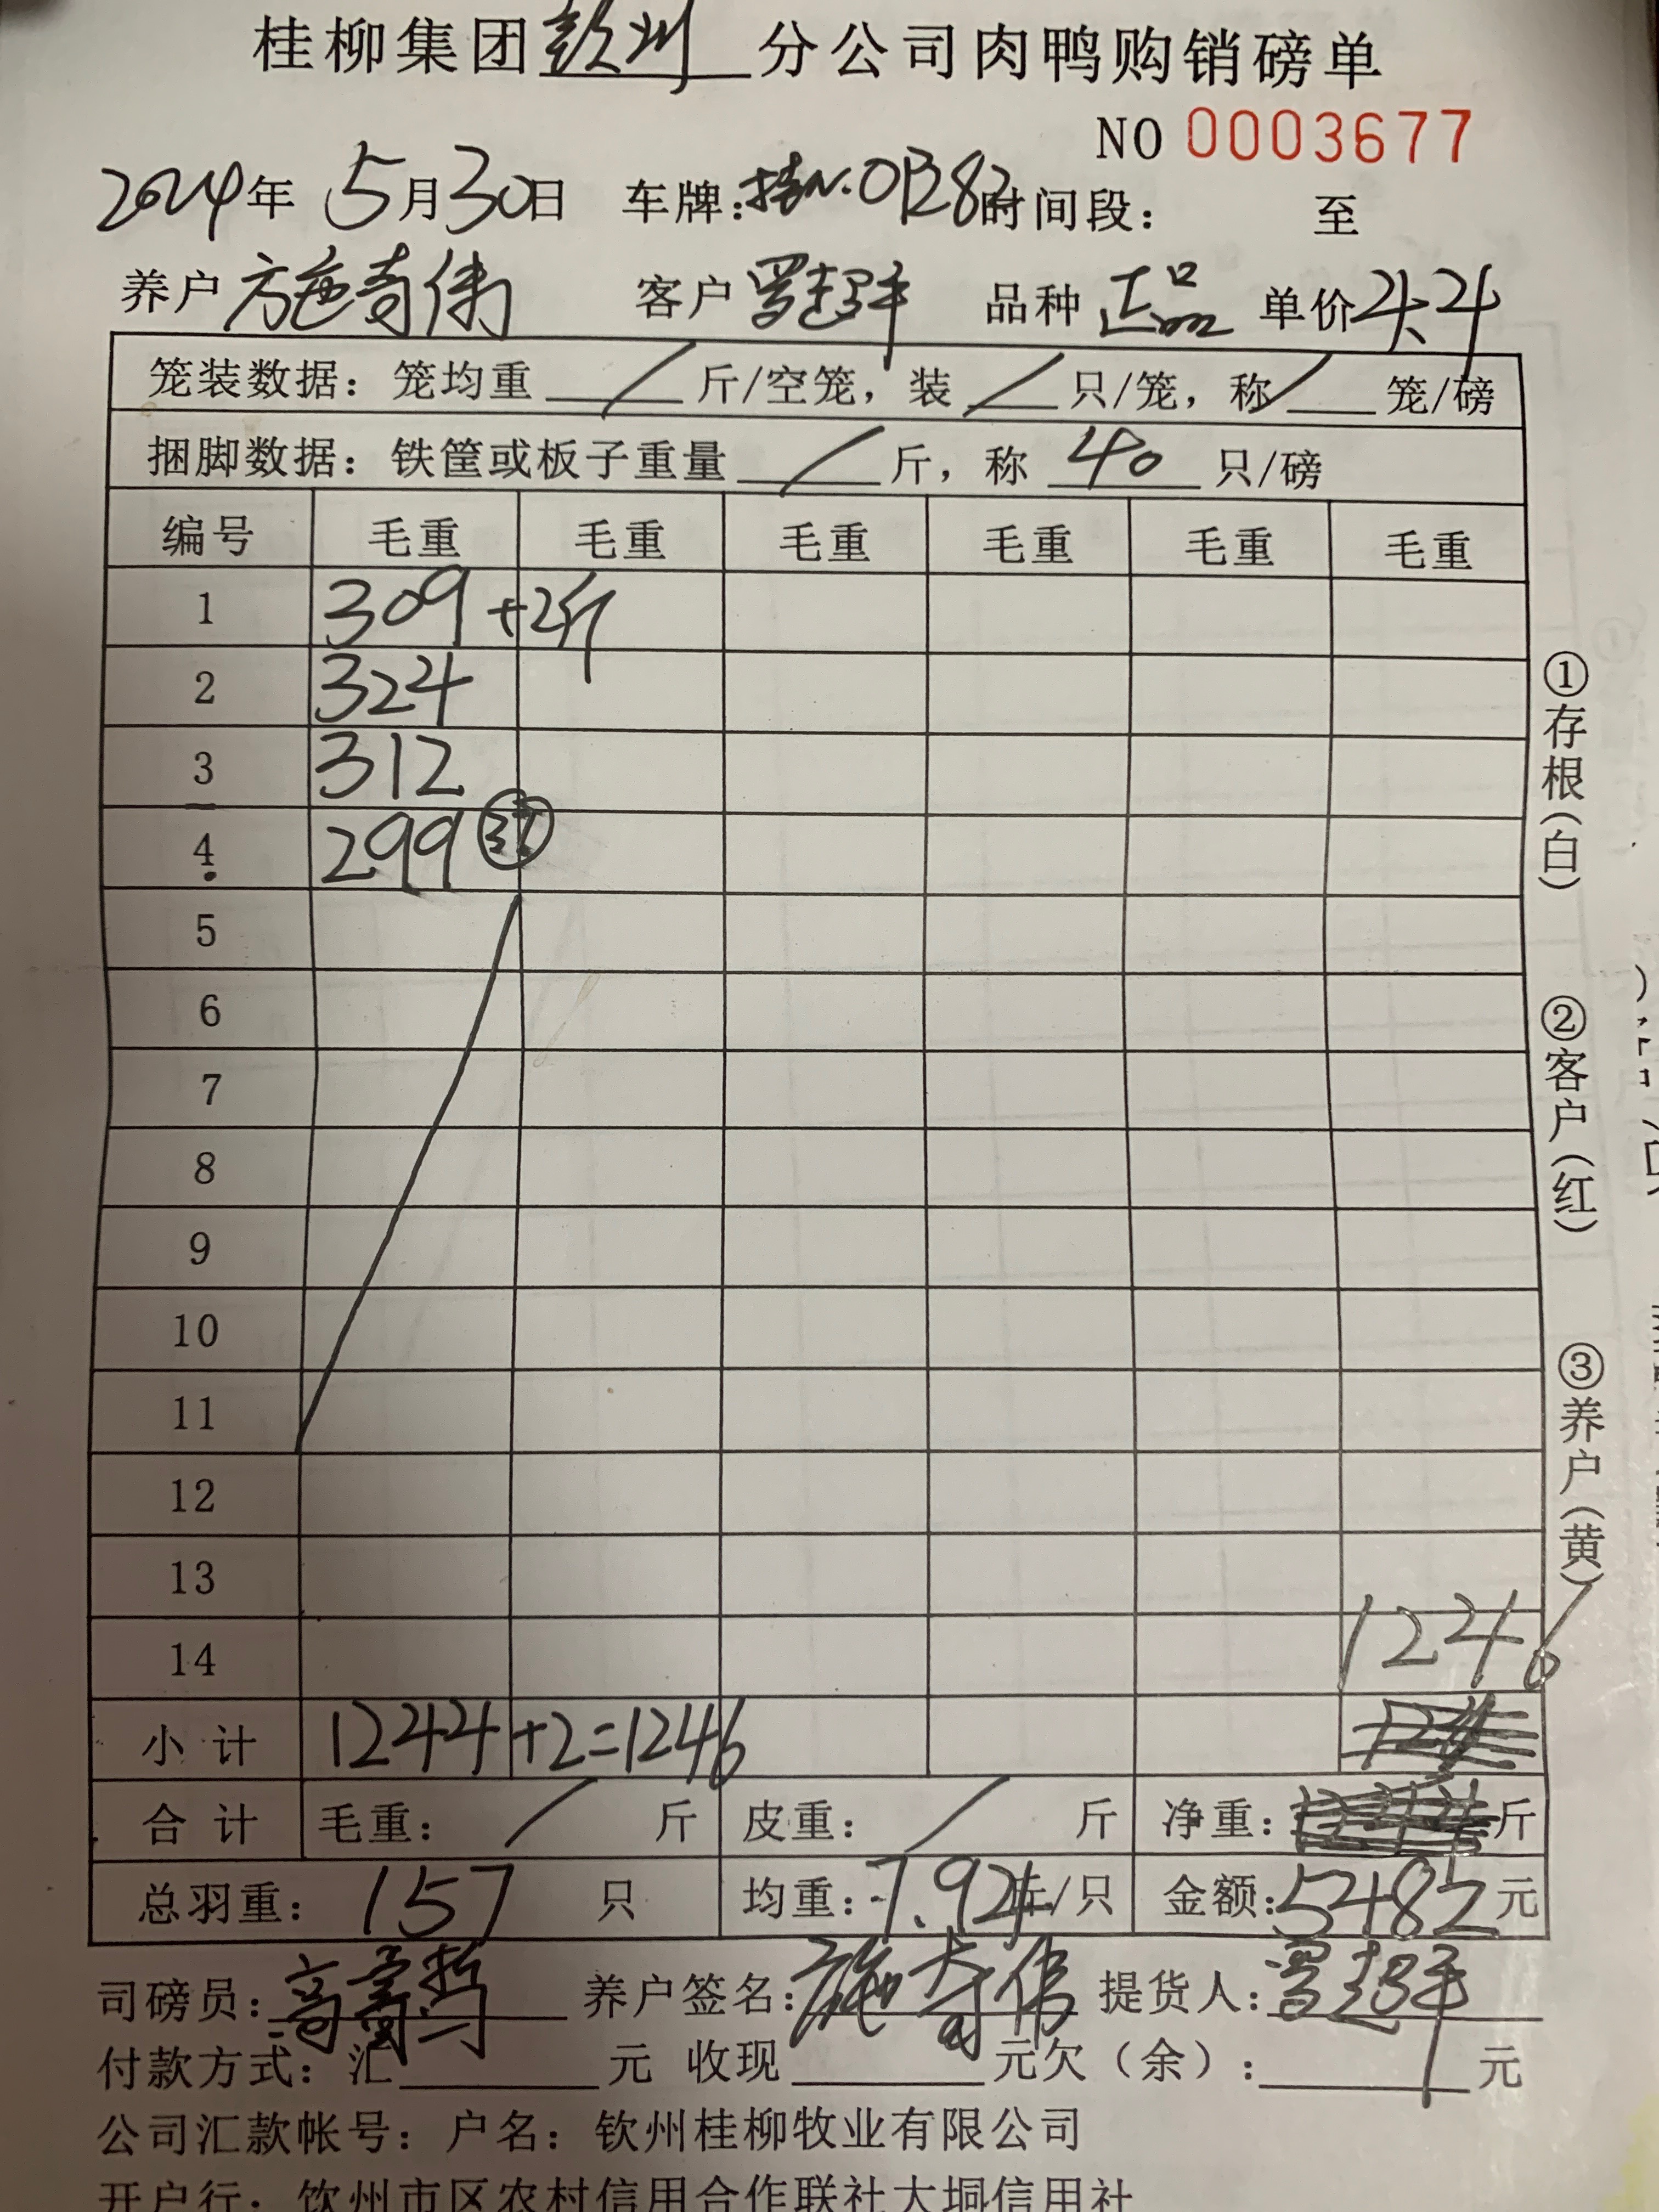 桂柳集团钦州分公司肉鸭购销磅单
NO 0003677
2024年 5月30日 车牌:桂N.0B282 时间段: 至
养户 施奇伟 客户 罗超平 品种 正品 单价 4.4
笼装数据: 笼均重 / 斤/空笼, 装 / 只/笼, 称 / 笼/磅
捆脚数据: 铁筐或板子重量 / 斤, 称 40 只/磅
编号 毛重 毛重 毛重 毛重 毛重 毛重
1 309 +2斤
2 324
3 312
4 299 37
5
6
7
8
9
10
11
12
13
14 1246
小计 1244 +2=1246
合计 毛重: / 斤 皮重: / 斤 净重: 斤
总羽重: 157 只 均重: 7.94斤/只 金额:5482元
司磅员: 养户签名:施奇伟 提货人:罗超平
付款方式: 汇 元 收现 元欠(余): 元
公司汇款帐号: 户名: 钦州桂柳牧业有限公司
开户行: 钦州市区农村信用合作联社大垌信用社
①存根(白)
②客户(红)
③养户(黄)